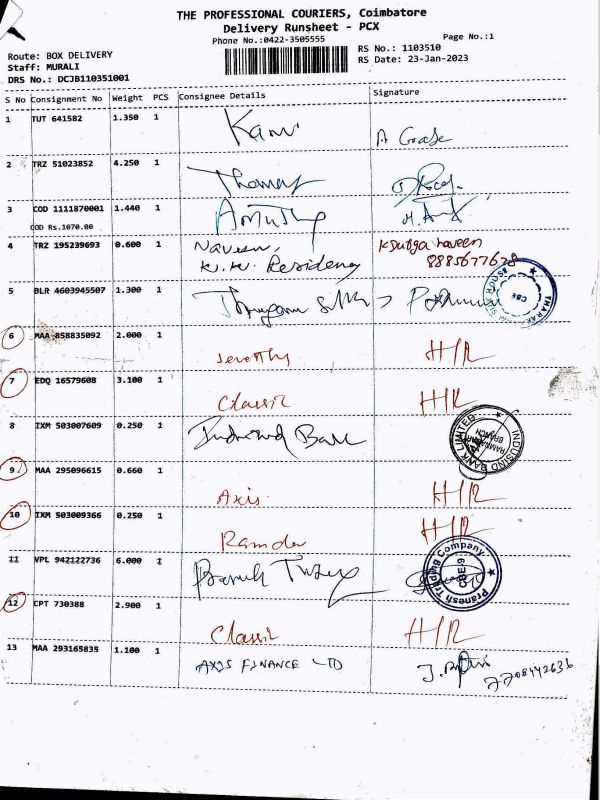 THE PROFESSIONAL COURIERS, Coimbatore
Delivery Runsheet - PCX
Phone No.:0422-3505555
Page No.:1
Route: BOX DELIVERY
Staff: MURALI
DRS No.: DCJB110351001
RS No.: 1103510
RS Date: 23-Jan-2023
S No Consignment No Weight PCS Consignee Details Signature
1 TUT 641582 1.350 1
2 TRZ 51023852 4.250 1 Thomas
3 COD 1111870001 1.440 1
COD Rs.1070.00
4 TRZ 195239693 0.600 1 Naveen,
Residency
8885677678
5 BLR 4603945507 1.300 1
6 MAA 858835092 2.000 1 H/R
7 EDQ 16579608 3.100 1 Classic H/R
8 IXM 503007609 0.250 1 Indusind Bank
INDUSIND BANK LIMITED
BRANCH
9 MAA 295096615 0.660 1 Axis H/R
10 IXM 503009366 0.250 1 H/R
11 VPL 942122736 6.000 1
Pranesh Trading Company
CBE-9
12 CPT 730388 2.900 1 Classic H/R
13 MAA 293165835 1.100 1 AXIS FINANCE LTD
7708442636